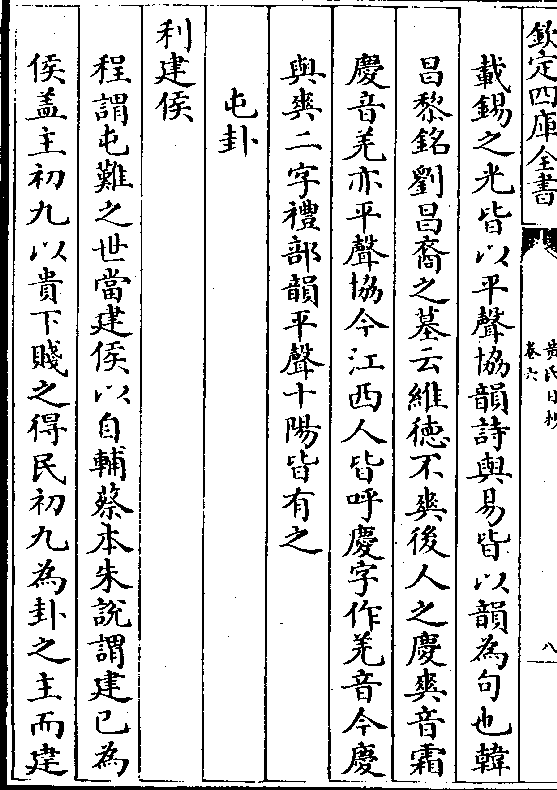 欽定四庫全書
黄氏日抄
卷六
八
載錫之光皆以平聲協韻詩與易皆以韻為句也韓
昌黎銘劉昌裔之墓云維徳不爽後人之慶爽音霜
慶音羌亦平聲協今江西人皆呼慶字作羌音今慶
與爽二字禮部韻平聲十陽皆有之
屯卦
利建侯
程謂屯難之世當建侯以自輔蔡本朱説謂建已為
侯盖主初九以貴下賤之得民初九為卦之主而建